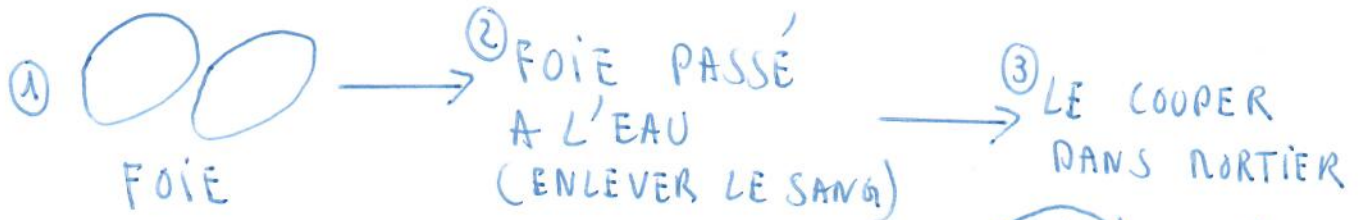 ① FOIE
② FOIE PASSÉ
A L'EAU
(ENLEVER LE SANG)
③ LE COUPER
DANS MORTIER